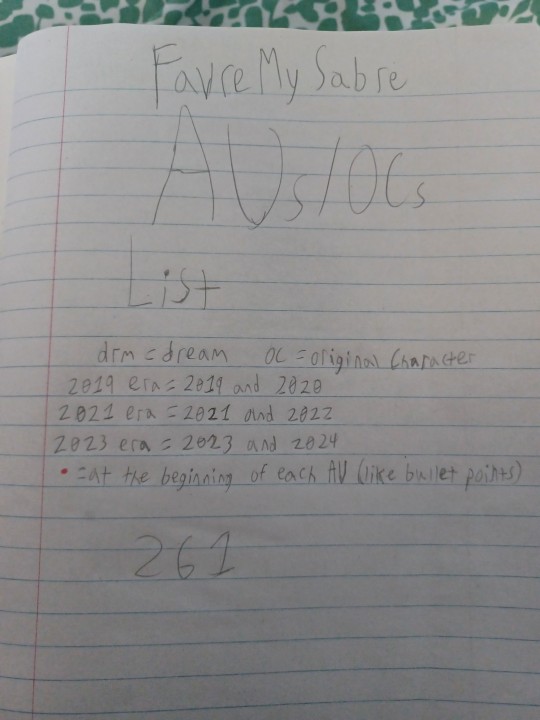 Favre My Sabre
AUs/OCs
List
drm = dream OC = original Character
2019 era = 2019 and 2020
2021 era = 2021 and 2022
2023 era = 2023 and 2024
• = at the beginning of each AU (like bullet points)
261